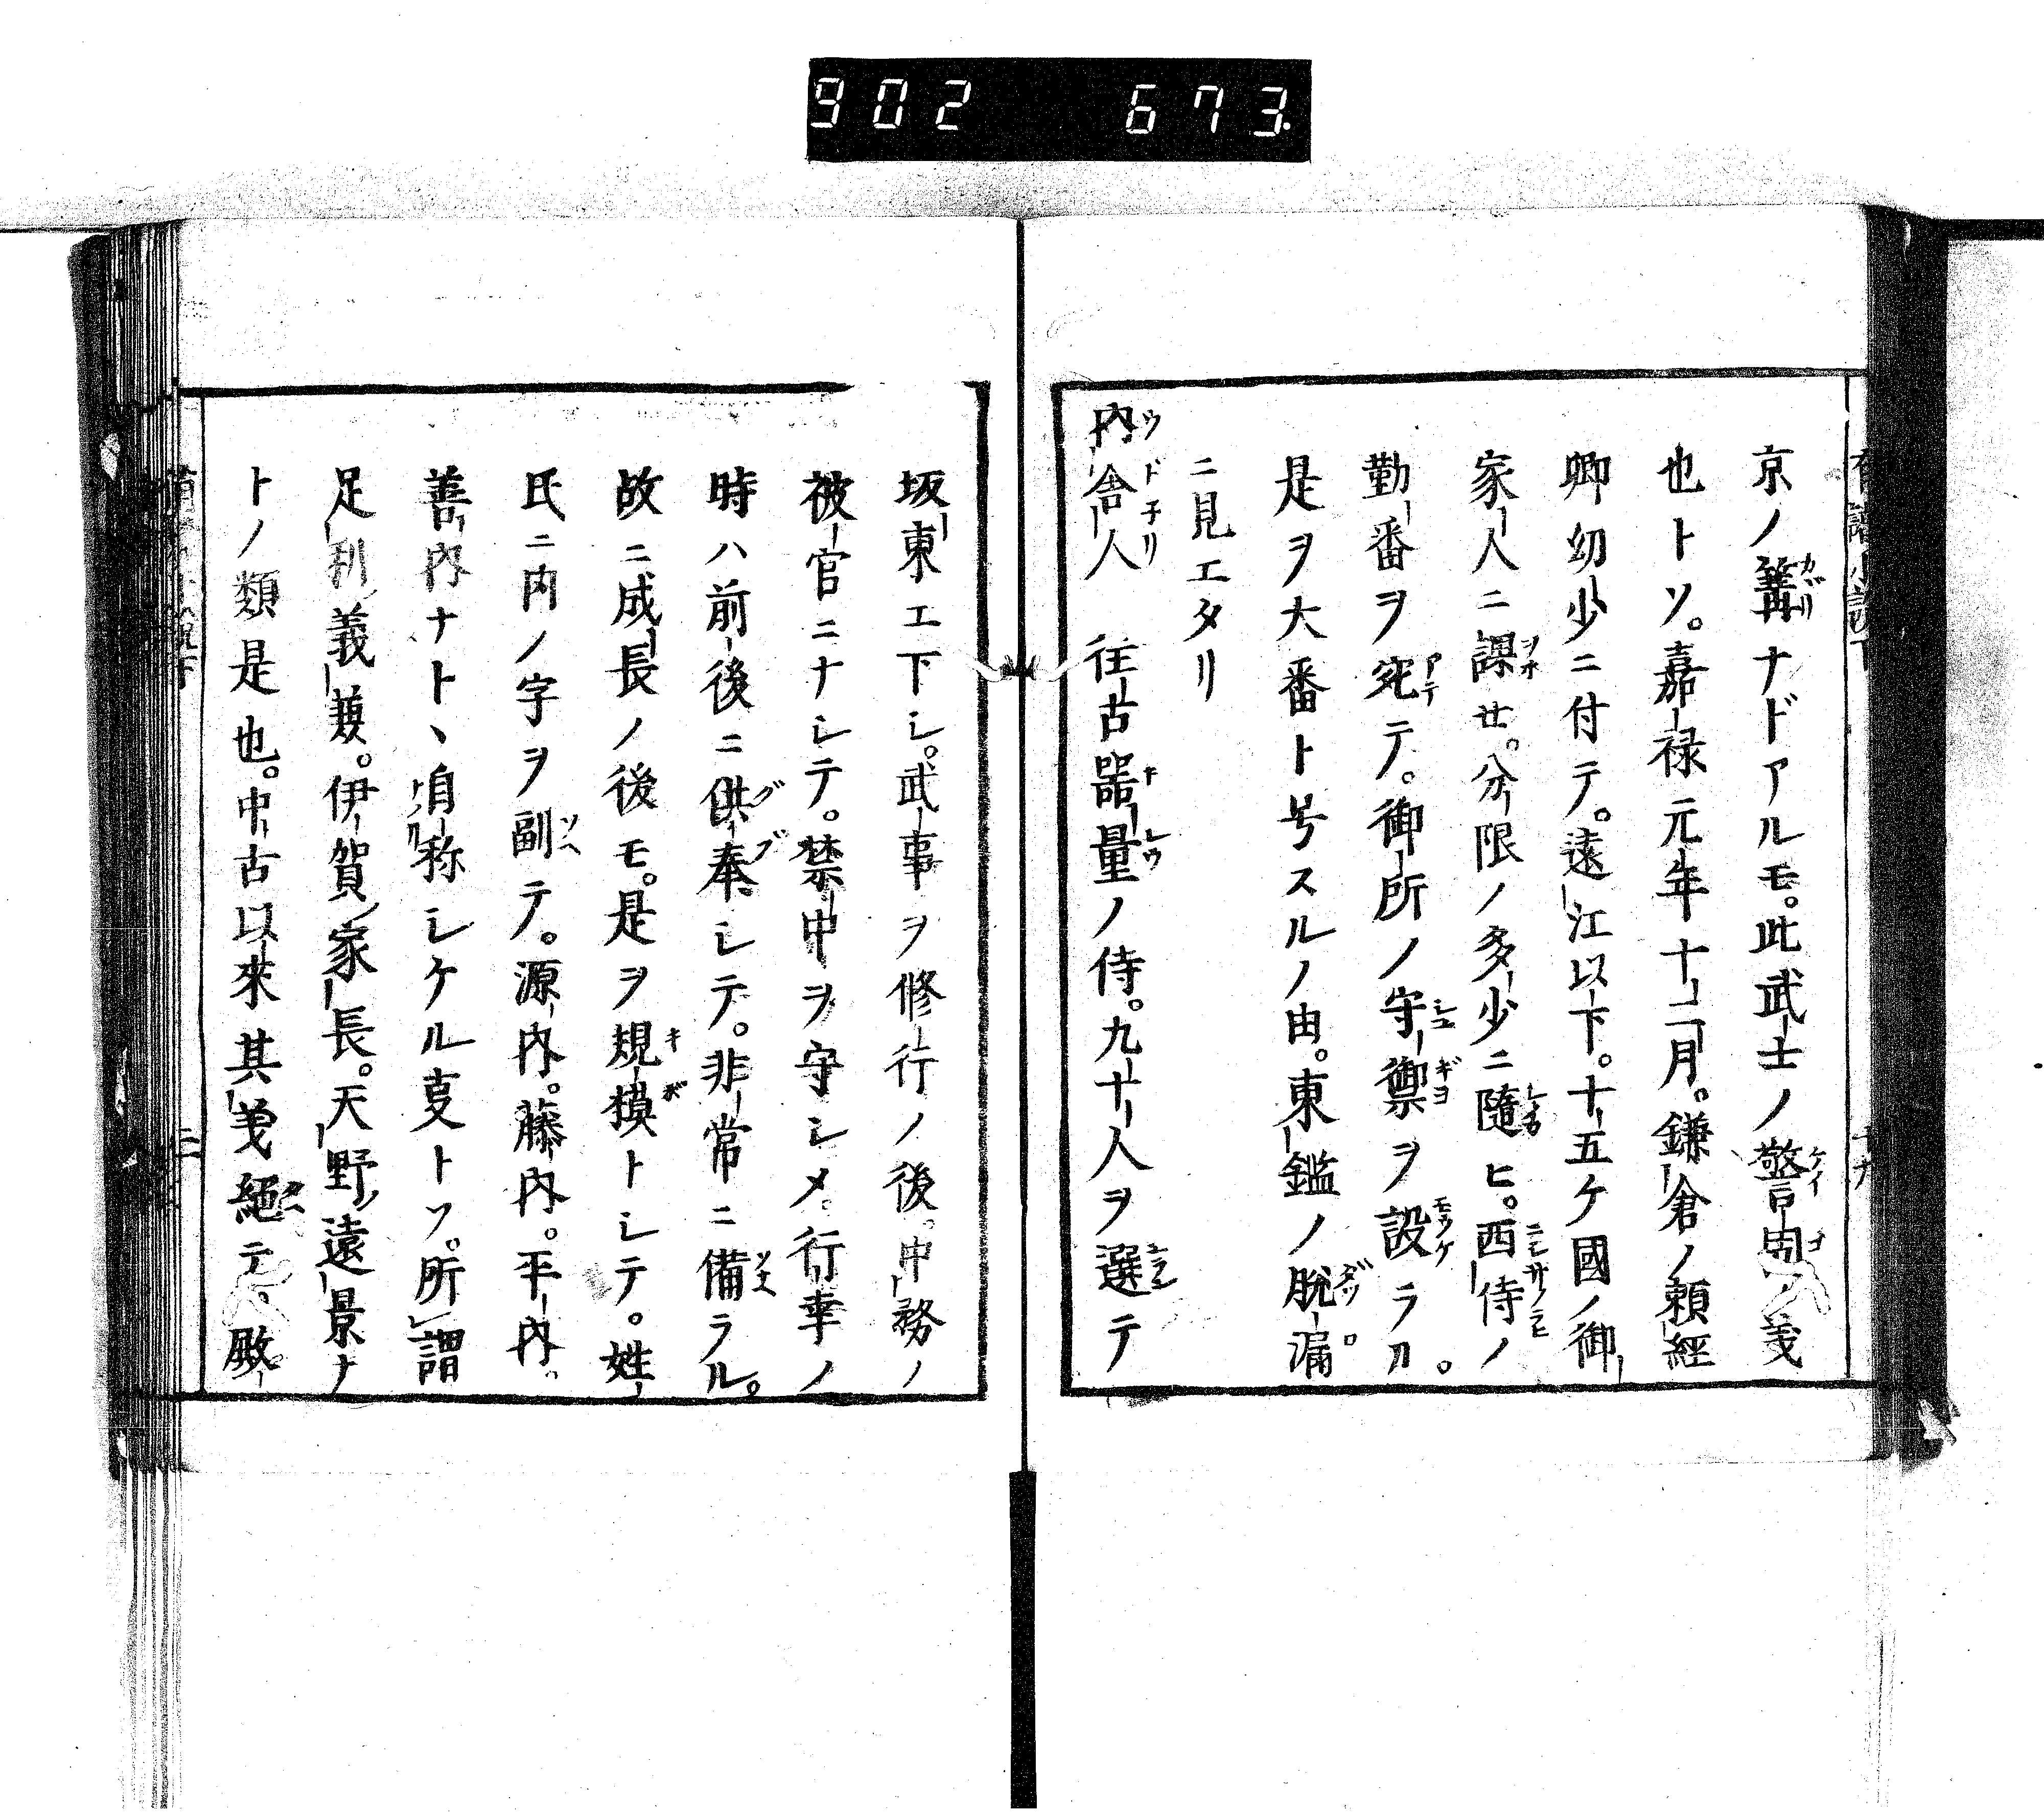 902 673
京ノ篝ナドアルモ。此武士ノ警固ノ義
也トソ。嘉禄元年十二月。鎌倉ノ頼經
卿幼少ニ付テ。遠江以下。十五ケ國ノ御
家人ニ課せ。分限ノ多少ニ隨ヒ。西侍ノ
勤番ヲ宛テ。御所ノ守禦ヲ設ラル。
是ヲ大番ト号スルノ由。東鑑ノ脱漏
ニ見エタリ
内舎人 往古器量ノ侍。九十人ヲ選テ
坂東エ下シ。武事ヲ修行ノ後。中務ノ
被官ニナシテ。禁中ヲ守シメ。行幸ノ
時ハ前後ニ供奉シテ。非常ニ備ラル。
故ニ成長ノ後モ。是ヲ規模トシテ。姓
氏ニ内ノ字ヲ副テ。源内。藤内。平内。
善内ナトヽ自称シケル叓トソ。所謂
足利義兼。伊賀家長。天野遠景ナ
トノ類是也。中古以來其義絕テ、殿